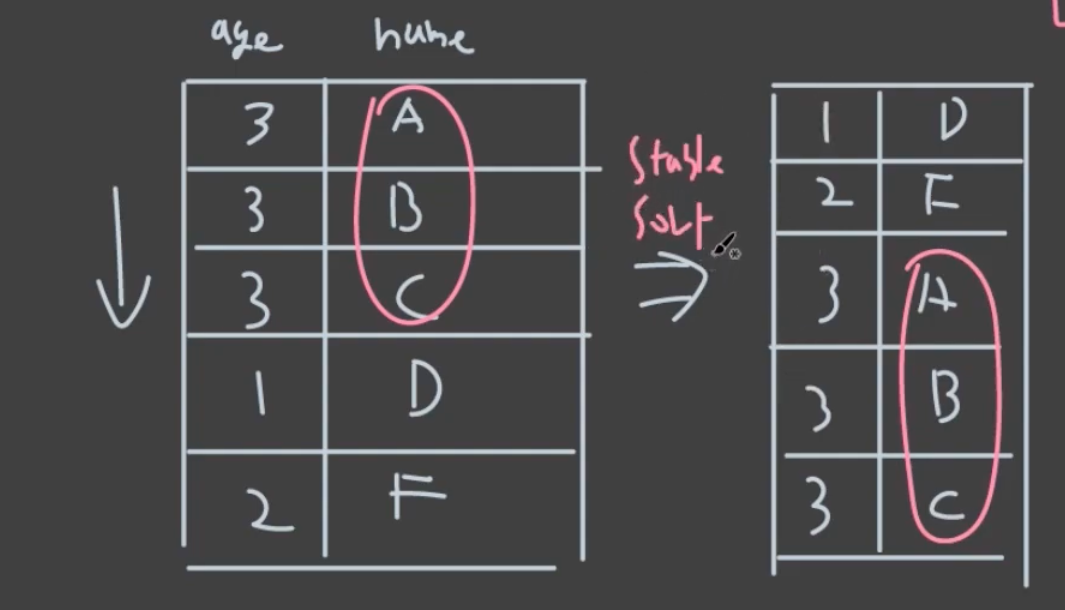 age name
3 A
3 B
3 C
1 D
2 F
Stable
Sort
1 D
2 F
3 A
3 B
3 C